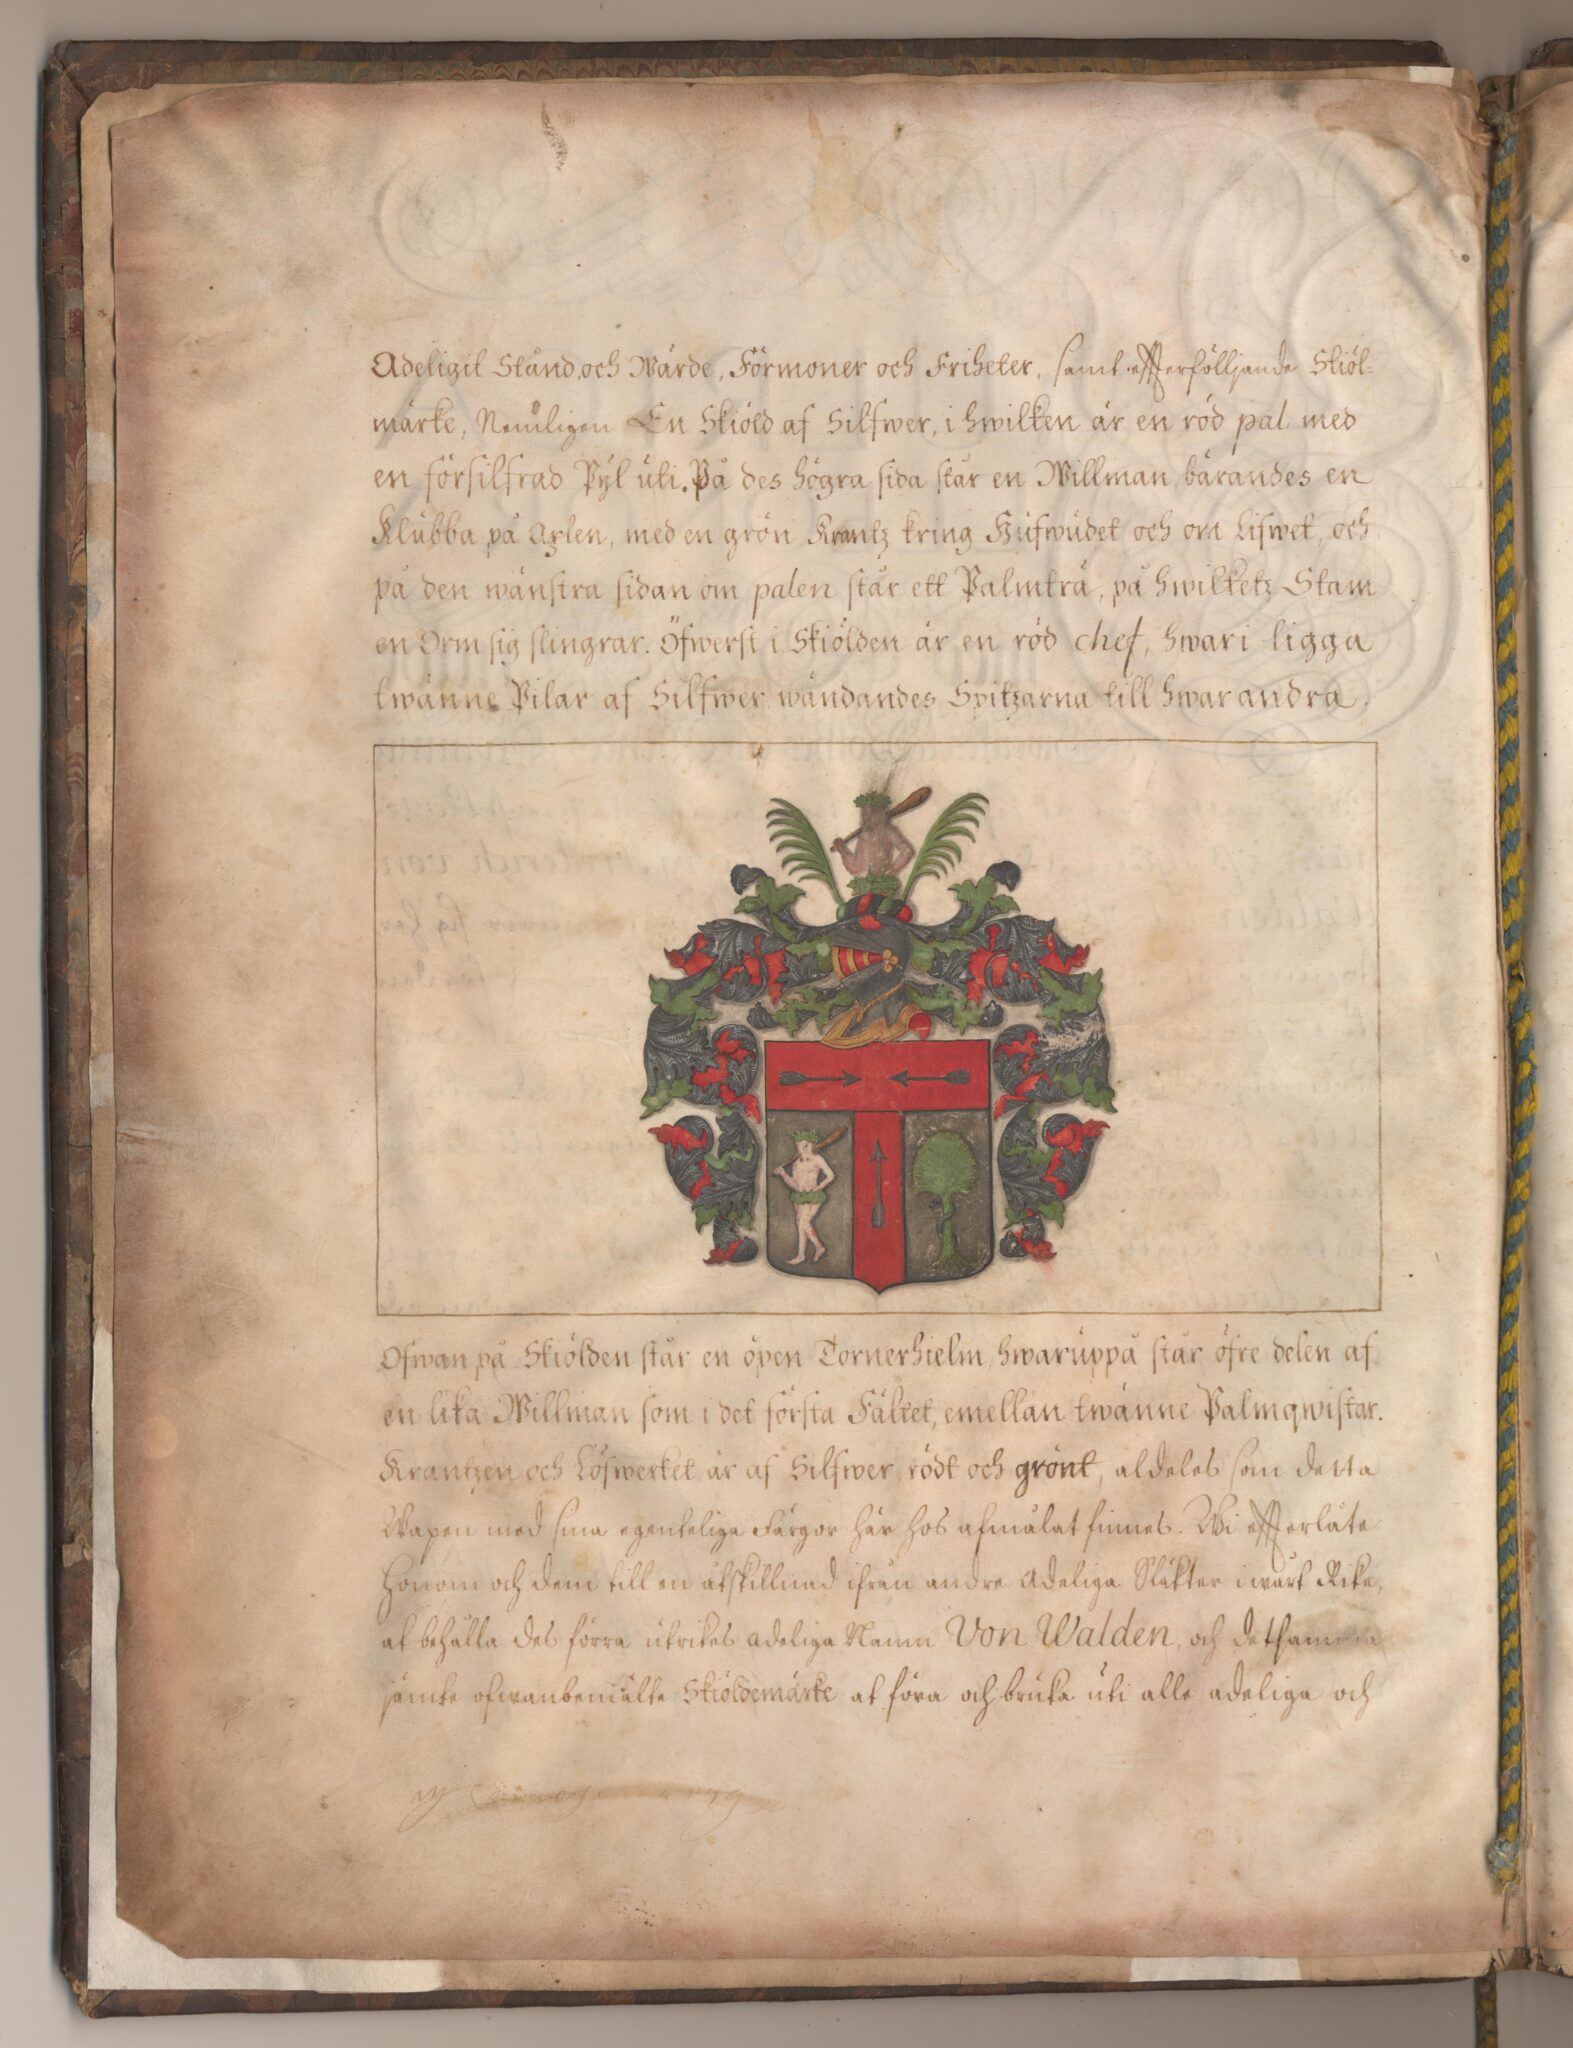 Adeligit Stånd, och Wärde, Förmoner och Friheter, samt effterfölljande Skiöl-
märke, Nemligen En Skiöld af Silfwer, i hwilken är en röd pal med
en försilfrad Pÿl uti. På des högra sida står en Willman, bärandes en
Klubba på Axlen, med en grön Krantz kring Hufwudet och om Lifwet, och
på den wänstra sidan om palen står ett Palmträ, på hwilketz Stam
en Orm sig slingrar. Öfwerst i Skiölden är en röd chef, hwari ligga
twänne Pilar af Silfwer wändandes Spitzarna till hwarandra.
Ofwan på Skiölden står en öpen Tornerhielm, hwaruppå står öfre delen af
en lika Willman som i det första Fältet, emellan twänne Palmqwistar.
Krantzen och Löfwerket är af Silfwer, rödt och grönt, aldeles som detta
Wapen med sina egenteliga Färgor här hos afmålat finnes. Wi effterlåte
Honom och dem till en åtskillnad ifrån andre Adeliga Släkter i wårt Rike,
at behålla des förra utrikes adeliga Namn Von Walden, och detsamma
jämte ofwanbemälte Skiöldemärke at föra och bruka uti alle adeliga och